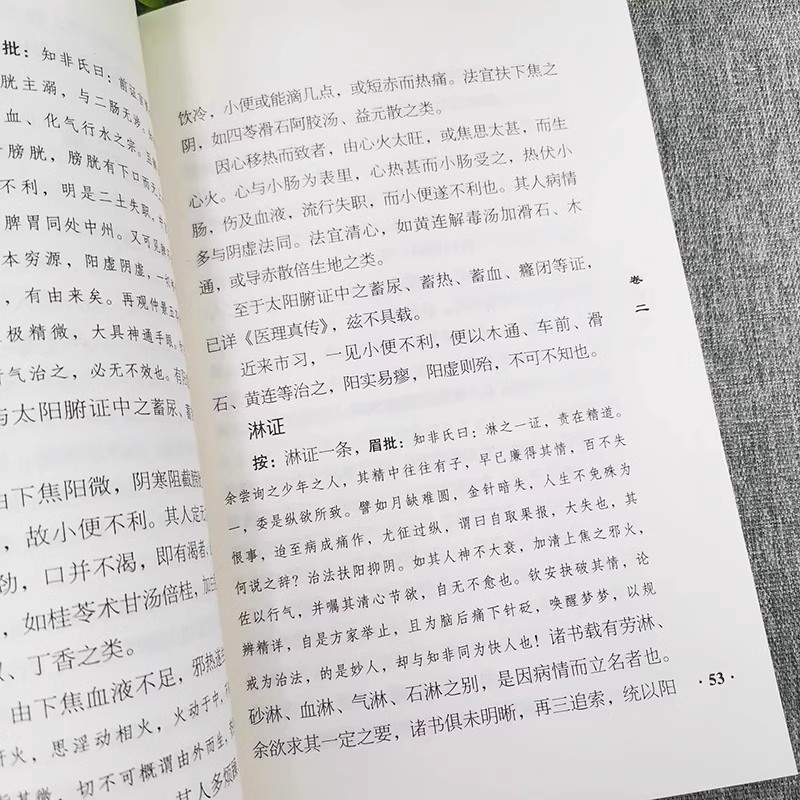 批：知非氏曰：前证
胱主弱，与二肠无涉
血、化气行水之宗。
膀胱，膀胱有下口而无上
不利，明是二土失职，
脾胃同处中州。又可见
本穷源，阳虚阴虚，一
，有由来矣。再观仲景
极精微，大具神通手眼，
气治之，必无不效也。
与太阳腑证中之蓄尿、
由下焦阳微，阴寒阻截
，故小便不利。其人定
劲，口并不渴，即有渴者，
，如桂苓术甘汤倍桂，
、丁香之类。
由下焦血液不足，邪热
火，思淫动相火，火动于中，
其微，切不可概谓由外而生，
其人多烦躁
饮冷，小便或能滴几点，或短赤而热痛。法宜扶下焦之
阴，如四苓滑石阿胶汤、益元散之类。
因心移热而致者，由心火太旺，或焦思太甚，而生
心火。心与小肠为表里，心热甚而小肠受之，热伏小
肠，伤及血液，流行失职，而小便遂不利也。其人病情
多与阴虚法同。法宜清心，如黄连解毒汤加滑石、木
通，或导赤散倍生地之类。
至于太阳腑证中之蓄尿、蓄热、蓄血、癃闭等证，
已详《医理真传》，兹不具载。
近来市习，一见小便不利，便以木通、车前、滑
石、黄连等治之，阳实易瘳，阳虚则殆，不可不知也。
淋证
按：淋证一条，眉批：知非氏曰：淋之一证，责在精道。
余尝询之少年之人，其精中往往有子，早已廉得其情，百不失
一，委是纵欲所致。譬如月缺难圆，金针暗失，人生不免殊为
恨事，迨至病成痛作，尤征过纵，谓曰自取果报，大失也，其
何说之辞？治法扶阳抑阴。如其人神不大衰，加清上焦之邪火，
佐以行气，并嘱其清心节欲，自无不愈也。钦安扶破其情，论
辨精详，自是方家举止，且为脑后痛下针砭，唤醒梦梦，以规
戒为治法，的是妙人，却与知非同为快人也！诸书载有劳淋、
砂淋、血淋、气淋、石淋之别，是因病情而立名者也。
余欲求其一定之要，诸书俱未明晰，再三追索，统以阳
卷二
·53·